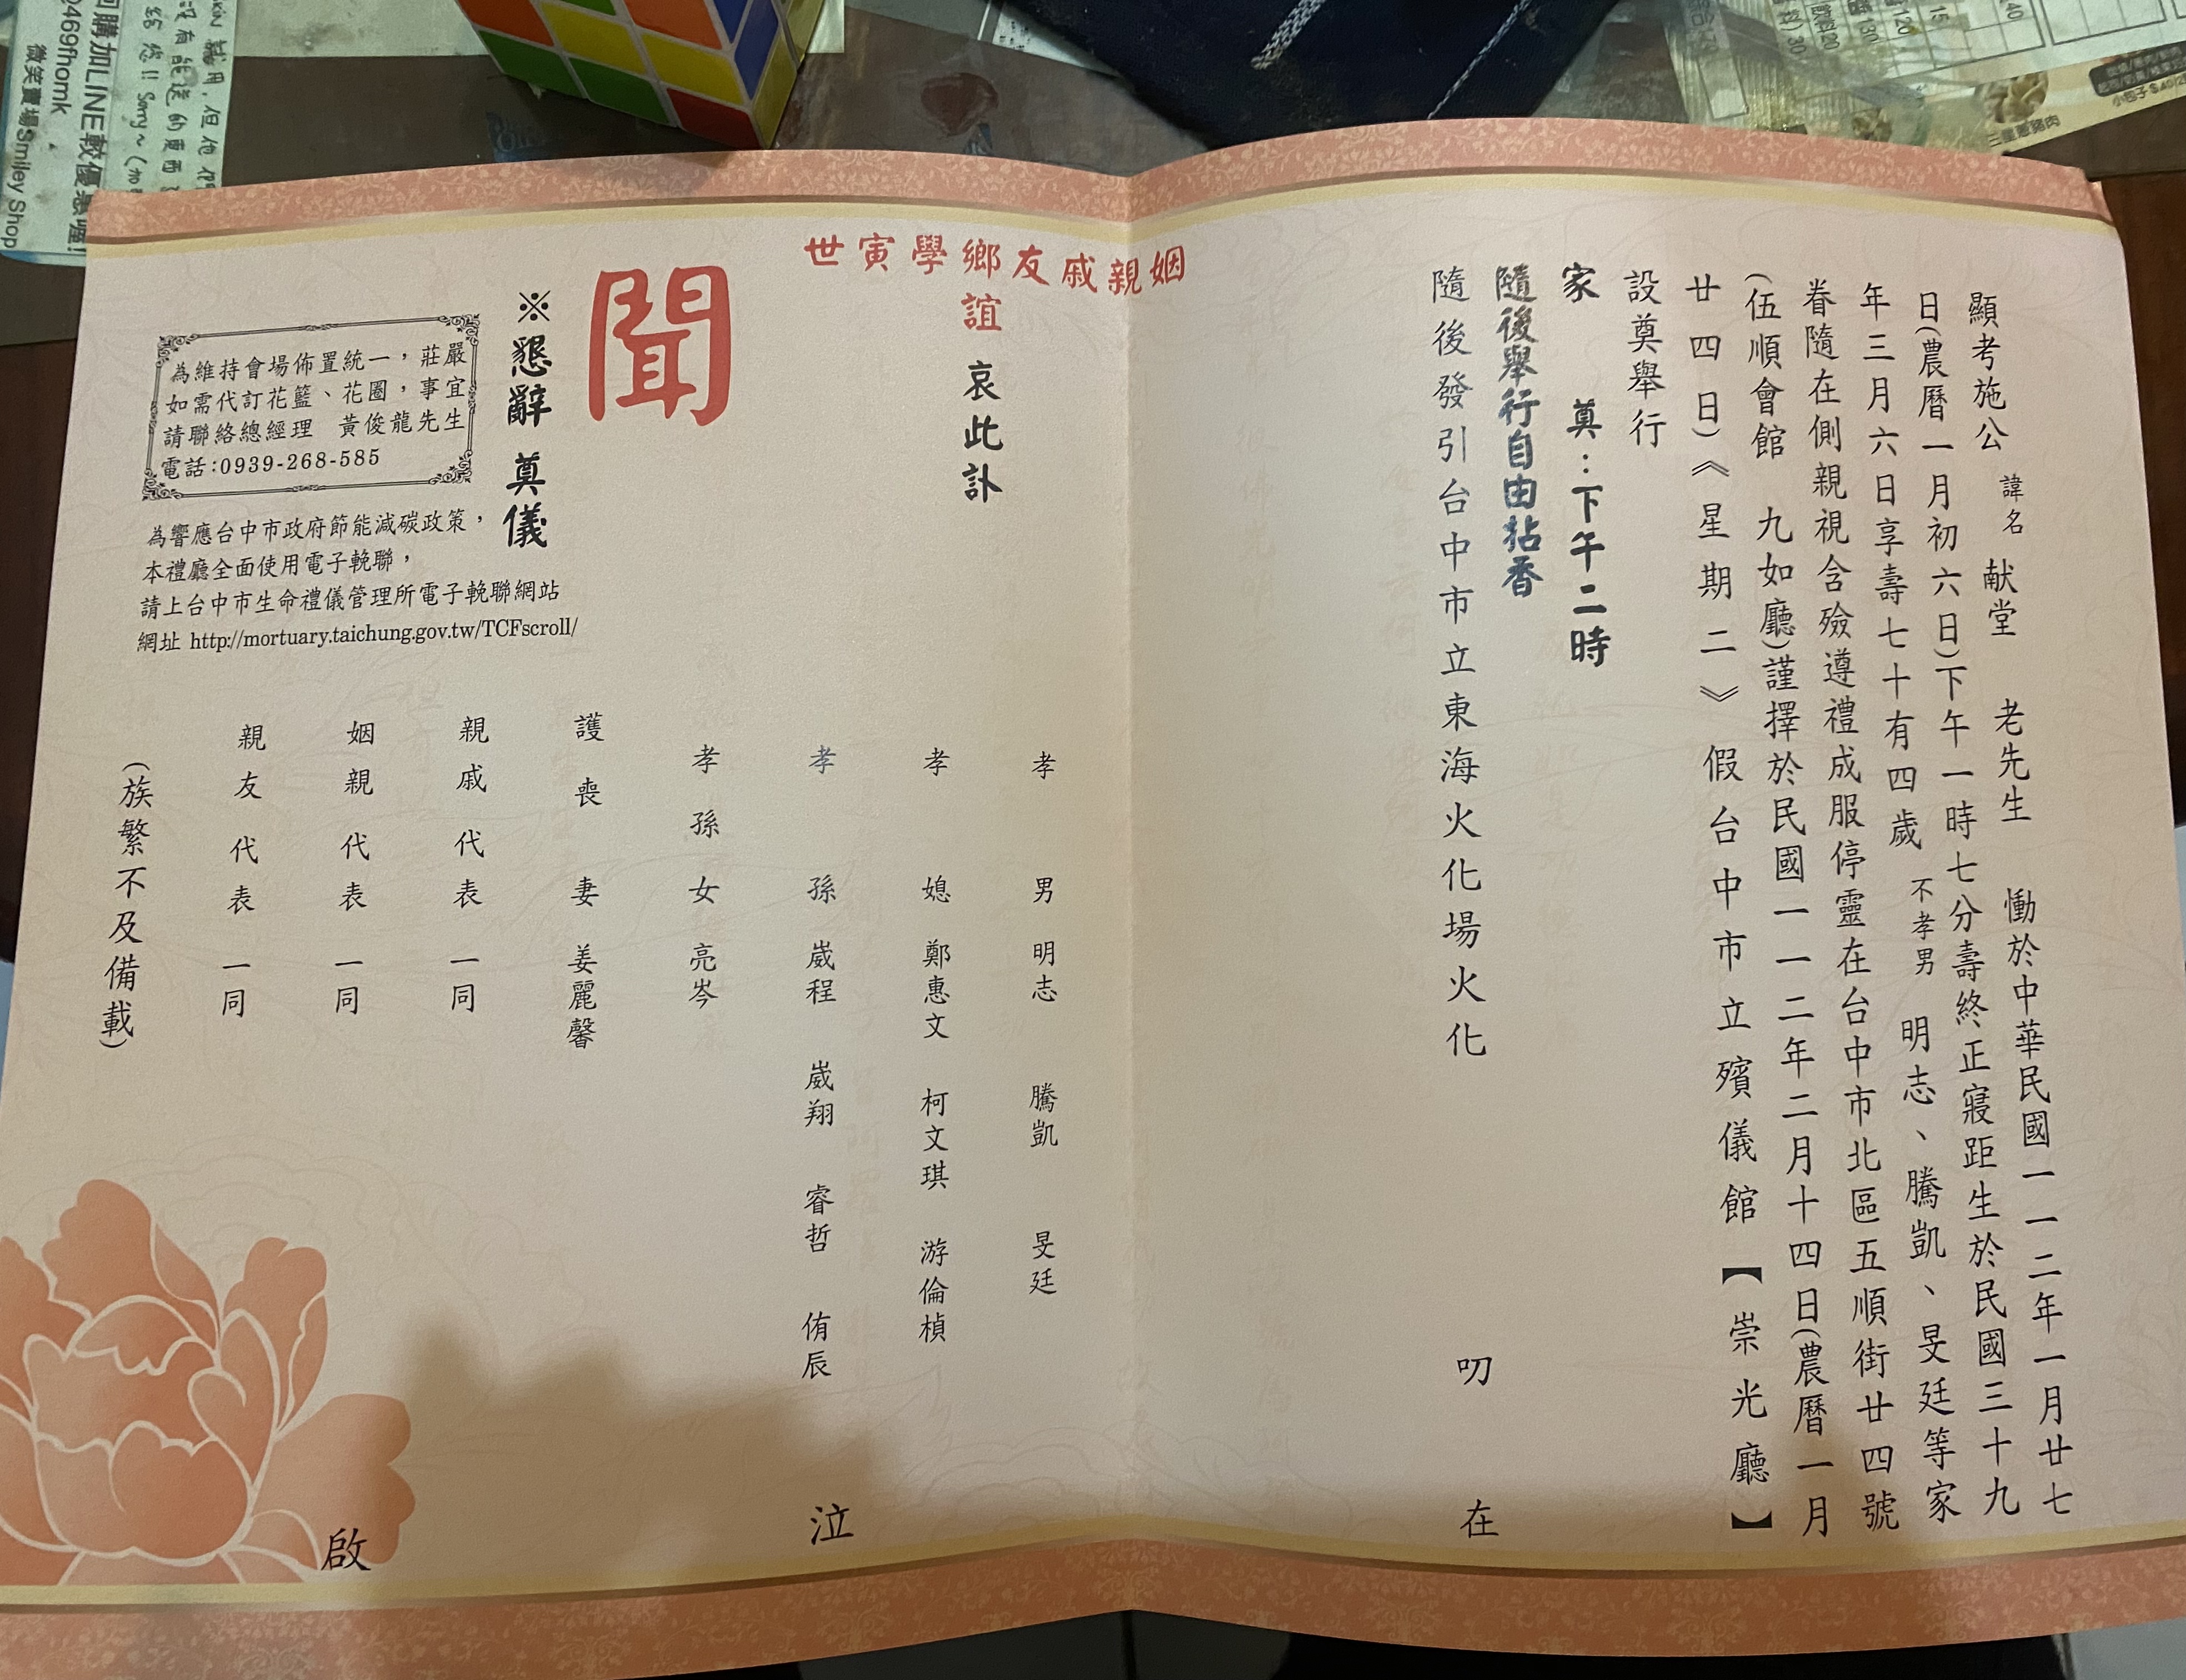 顯考施公 諱名 献堂 老先生 慟於中華民國一一二年一月廿七
日(農曆一月初六日)下午一時七分壽終正寢距生於民國三十九
年三月六日享壽七十有四歲 不孝男 明志、騰凱、旻廷等家
眷隨在側親視含殮遵禮成服停靈在台中市北區五順街廿四號
(伍順會館 九如廳)謹擇於民國一一二年二月十四日(農曆一月
廿四日)《星期二》假台中市立殯儀館【崇光廳】
設奠舉行
家 奠:下午二時
隨後舉行自由拈香
隨後發引台中市立東海火化場火化
叨 在
姻親戚友鄉學寅世
誼 哀此訃
聞
孝 男 明志 騰凱 旻廷
孝 媳 鄭惠文 柯文琪 游倫楨
孝 孫 崴程 崴翔 睿哲 侑辰 泣
孝孫女 亮岑
護喪妻 姜麗馨
親戚代表 一同
姻親代表 一同
親友代表 一同
(族繁不及備載)
啟
※懇辭 奠儀
為維持會場佈置統一,莊嚴
如需代訂花籃、花圈,事宜
請聯絡總經理 黃俊龍先生
電話:0939-268-585
為響應台中市政府節能減碳政策,
本禮廳全面使用電子輓聯,
請上台中市生命禮儀管理所電子輓聯網站
網址 http://mortuary.taichung.gov.tw/TCFscroll/
回購加LINE較優惠喔!
@469fhomk
微笑賣場Smiley Shop
小包子$40
三星蔥豬肉